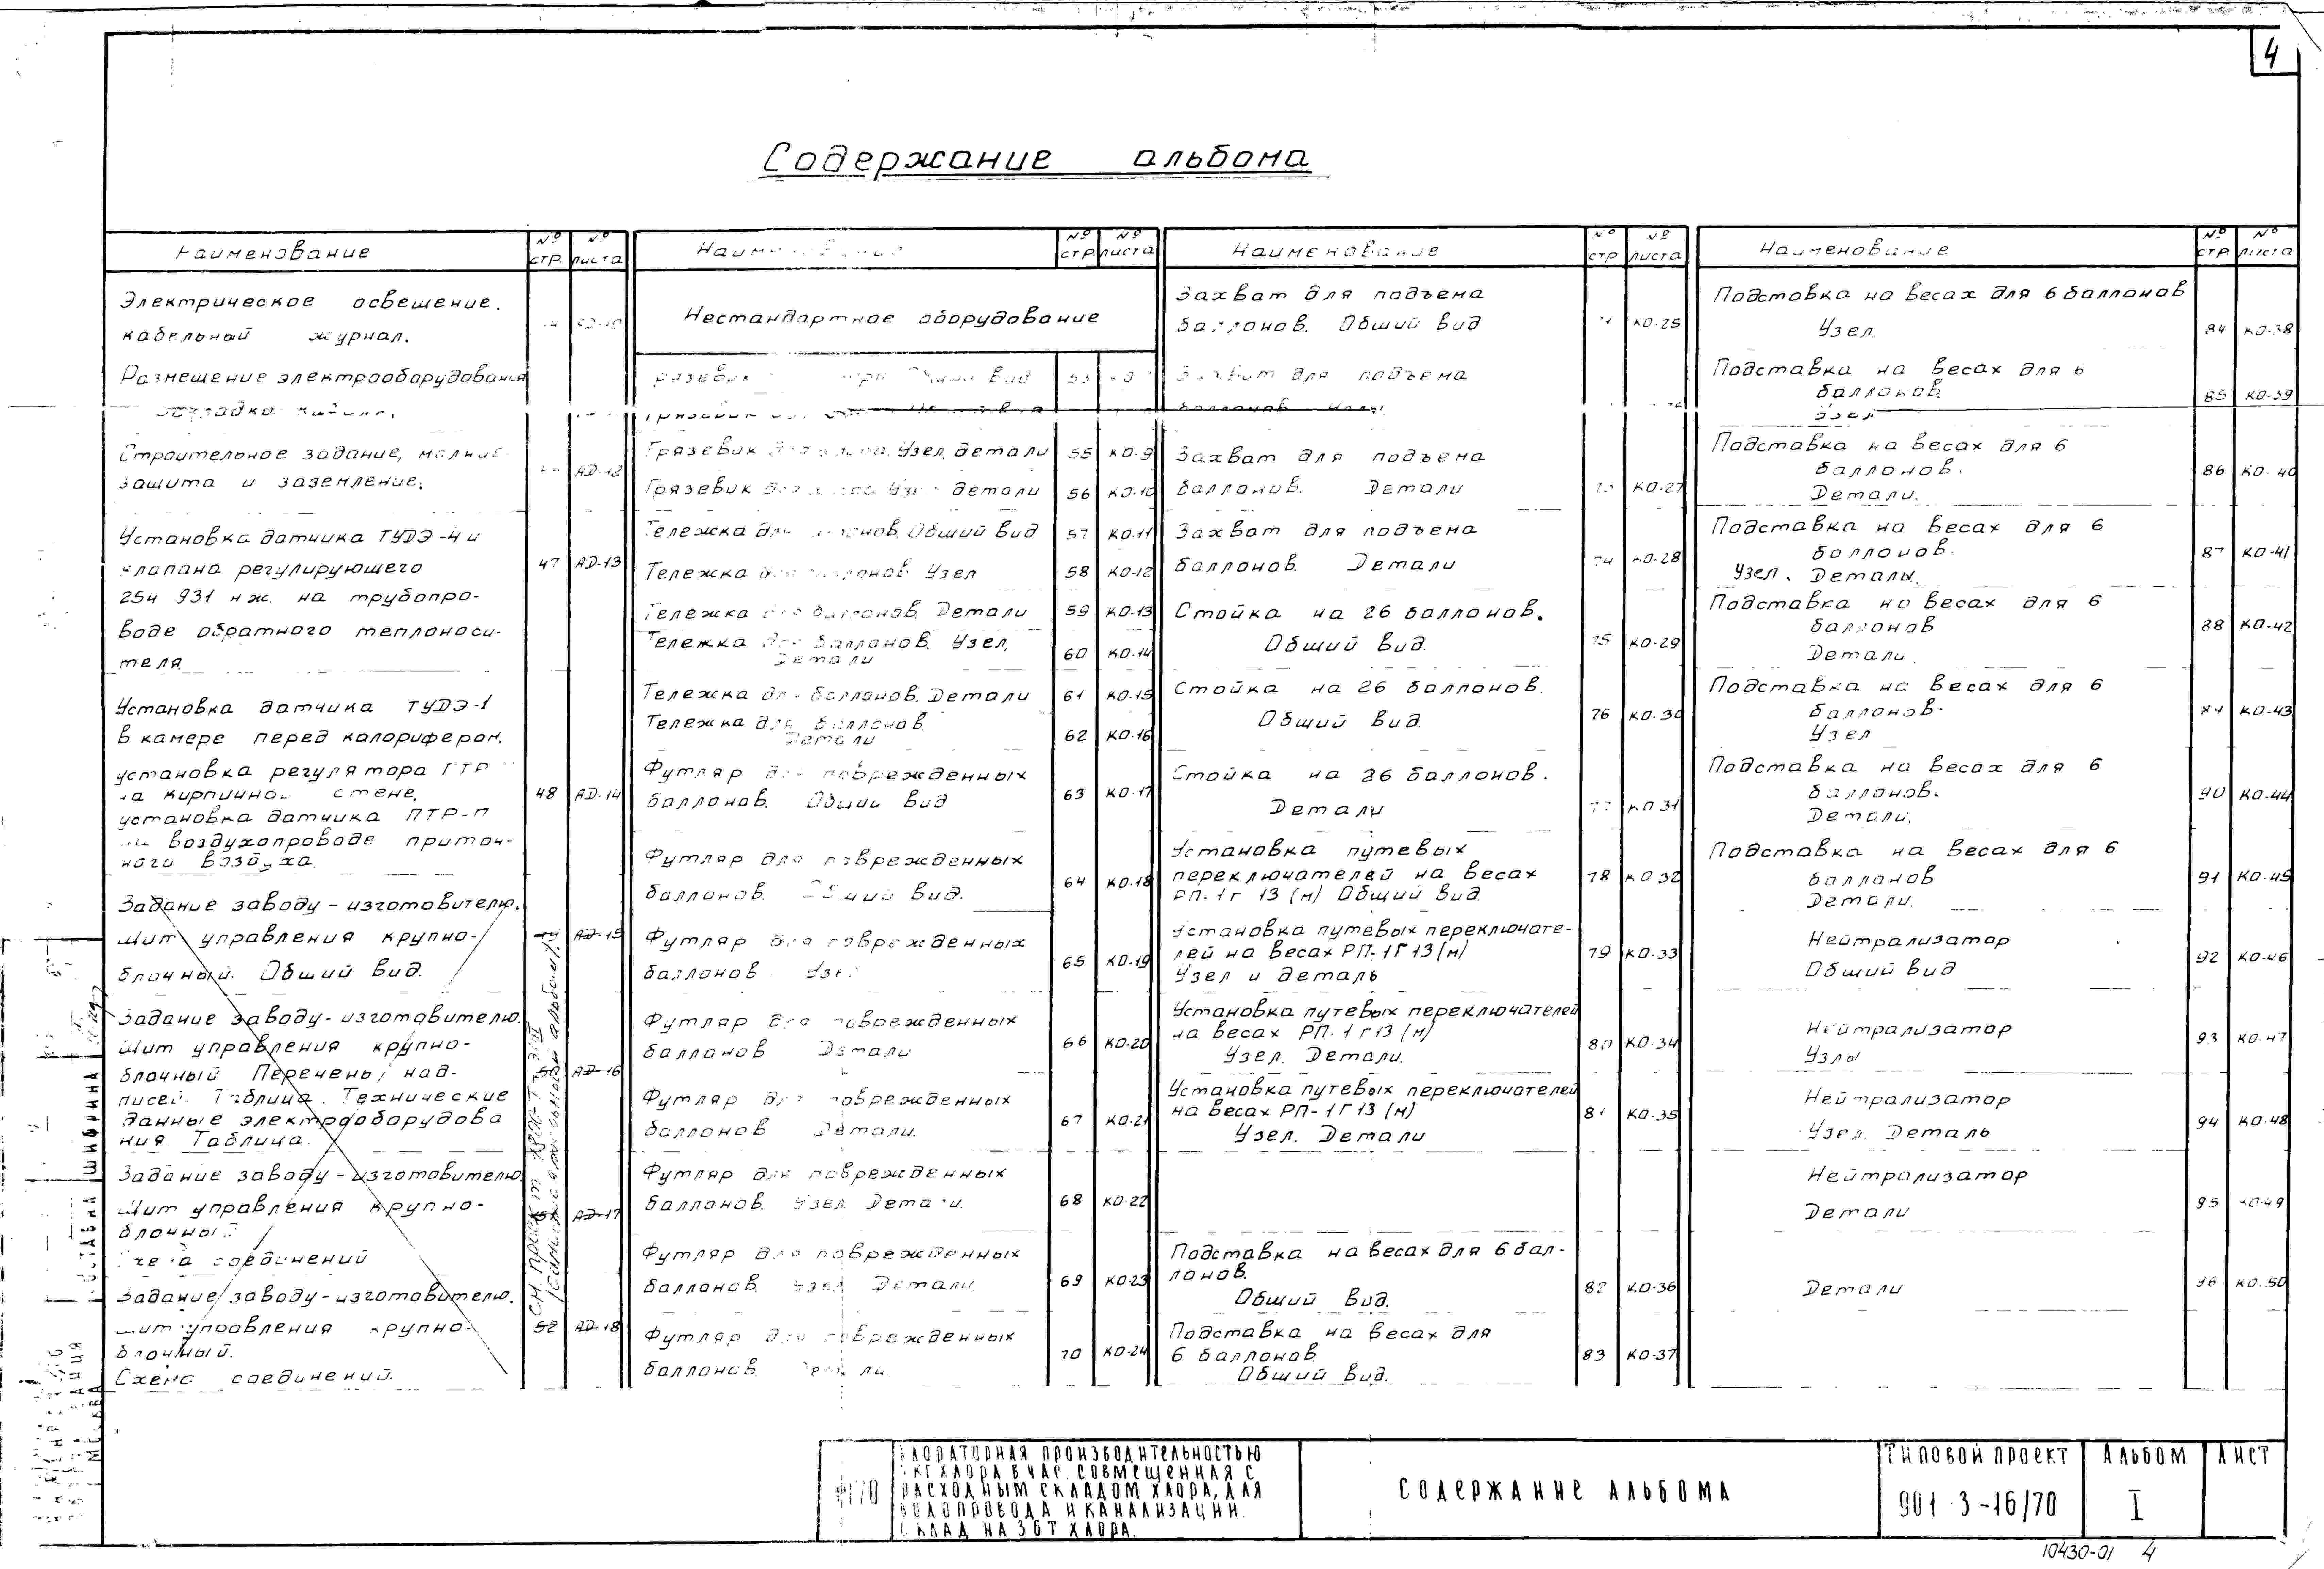 4
Содержание альбома
Наименование № стр. № листа
Электрическое освещение.
кабельный журнал.
Размещение электрооборудования
Строительное задание, молние-
защита и заземление. АД-12
Установка датчика ТУДЭ-4 и
клапана регулирующего 47 АД-13
25ч 931 нж. на трубопро-
воде обратного теплоноси-
теля
Установка датчика ТУДЭ-1
в камере перед калорифером.
установка регулятора ПТР
на кирпичной стене. 48 АД-14
установка датчика ПТР-П
на воздухопроводе приточ-
ного воздуха.
Задание заводу-изготовителю.
Щит управления крупно- 49 АД-15
блочный. Общий вид.
Задание заводу-изготовителю.
Щит управления крупно-
блочный Перечень над- 50 АД-16
писей. Таблица. Технические
данные электрооборудова
ния Таблица.
Задание заводу-изготовителю.
Щит управления крупно- 51 АД-17
блочный
Схема соединений
Задание заводу-изготовителю.
Щит управления крупно- 52 АД-18
блочный.
Схема соединений.
Наименование № стр № листа
Нестандартное оборудование
Общий вид 53
Грязевик Узел, детали 55 КО-9
Грязевик Узел детали 56 КО-10
Тележка для баллонов. Общий вид 57 КО-11
Тележка для баллонов Узел 58 КО-12
Тележка для баллонов. Детали 59 КО-13
Тележка для баллонов. Узел,
Детали 60 КО-14
Тележка для баллонов. Детали 61 КО-15
Тележка для баллонов
Детали 62 КО-16
Футляр для поврежденных
баллонов. Общий вид 63 КО-17
Футляр для поврежденных
баллонов. Общий вид. 64 КО-18
Футляр для поврежденных
баллонов Узел 65 КО-19
Футляр для поврежденных
баллонов Детали 66 КО-20
Футляр для поврежденных
баллонов Детали. 67 КО-21
Футляр для поврежденных
баллонов. Узел Детали. 68 КО-22
Футляр для поврежденных
баллонов. Узел Детали 69 КО-23
Футляр для поврежденных
баллонов. Детали 70 КО-24
Наименование № стр № листа
Захват для подъема
баллонов. Общий вид КО-25
Захват для подъема
баллонов Узлы
Захват для подъема
баллонов. Детали КО-27
Захват для подъема
баллонов. Детали 74 КО-28
Стойка на 26 баллонов.
Общий вид. 75 КО-29
Стойка на 26 баллонов.
Общий вид. 76 КО-30
Стойка на 26 баллонов.
Детали 77 КО 31
Установка путевых
переключателей на весах 78 КО 32
РП-1г 13 (м) Общий вид.
Установка путевых переключате-
лей на весах РП-1Г 13 (м) 79 КО-33
Узел и деталь
Установка путевых переключателей
на весах РП-1г13 (м)
Узел. Детали. 80 КО-34
Установка путевых переключателей
на весах РП-1Г13 (м) 81 КО-35
Узел. Детали
Подставка на весах для 6 бал-
лонов.
Общий вид. 82 КО-36
Подставка на весах для
6 баллонов 83 КО-37
Общий вид.
Наименование № стр № листа
Подставка на весах для 6 баллонов
Узел. 84 КО-38
Подставка на весах для 6
баллонов. 85 КО-39
Узел
Подставка на весах для 6
баллонов. 86 КО-40
Детали.
Подставка на весах для 6
баллонов. 87 КО-41
Узел. Детали.
Подставка на весах для 6
баллонов 88 КО-42
Детали.
Подставка на весах для 6
баллонов. 89 КО-43
Узел
Подставка на весах для 6
баллонов. 90 КО-44
Детали.
Подставка на весах для 6
баллонов 91 КО-45
Детали.
Нейтрализатор
Общий вид 92 КО-46
Нейтрализатор
Узлы 93 КО-47
Нейтрализатор
Узел. Деталь 94 КО-48
Нейтрализатор
Детали 95 КО-49
Детали 96 КО-50
ХЛОРАТОРНАЯ ПРОИЗВОДИТЕЛЬНОСТЬЮ
КГ ХЛОРА В ЧАС, СОВМЕЩЕННАЯ С
РАСХОДНЫМ СКЛАДОМ ХЛОРА, ДЛЯ
ВОДОПРОВОДА И КАНАЛИЗАЦИИ.
СКЛАД НА 36Т ХЛОРА.
СОДЕРЖАНИЕ АЛЬБОМА
ТИПОВОЙ ПРОЕКТ
901-3-16/70
АЛЬБОМ
I
ЛИСТ
10430-01 4